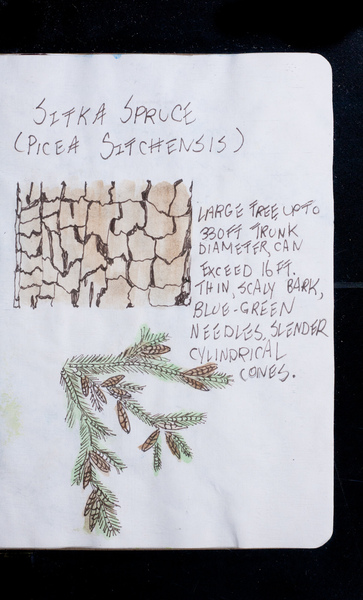 SITKA SPRUCE
(PICEA SITCHENSIS)
LARGE TREE UP TO
330FT TRUNK
DIAMETER, CAN
EXCEED 16FT.
THIN, SCALY BARK,
BLUE-GREEN
NEEDLES, SLENDER
CYLINDRICAL
CONES.